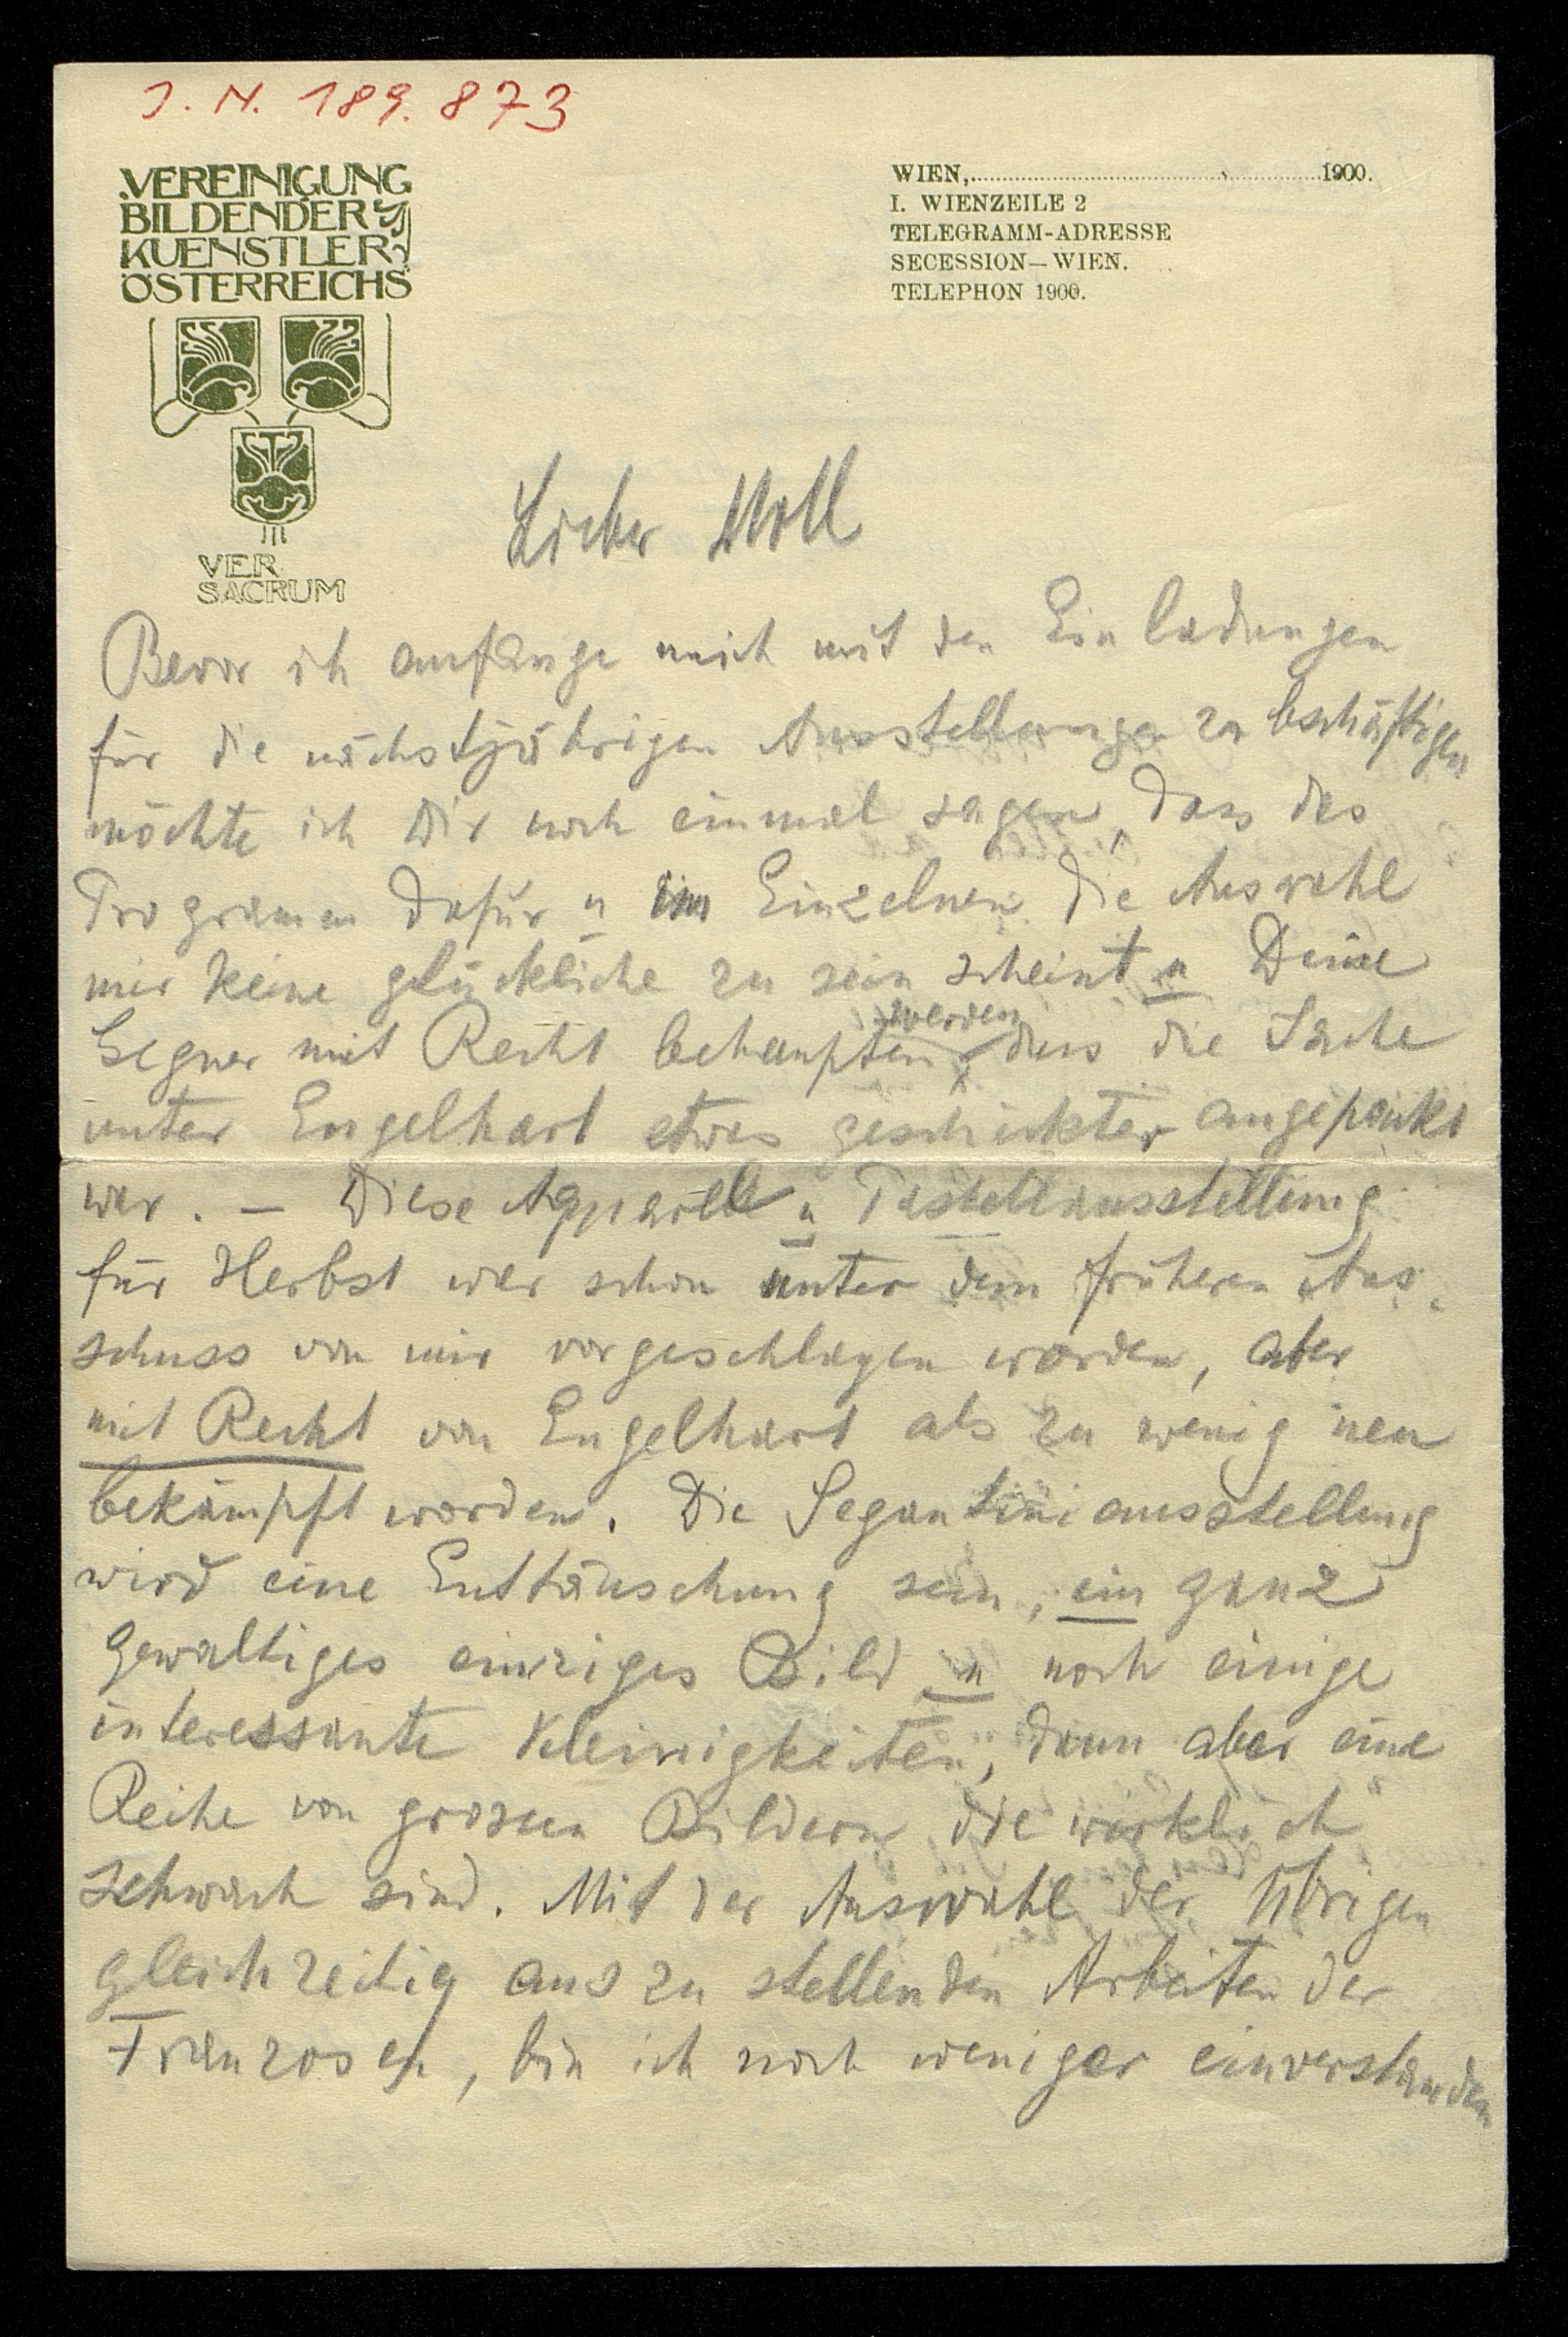 J. N. 189.873
VEREINIGUNG
BILDENDER
KUENSTLER
ÖSTERREICHS
VER
SACRUM
WIEN,..........1900.
I. WIENZEILE 2
TELEGRAMM-ADRESSE
SECESSION—WIEN.
TELEPHON 1900.
Lieber Moll
Bevor ich anfange mich mit den Einladungen
für die nächstjährigen Ausstellungen zu beschäftigen
möchte ich Dir noch einmal sagen, dass das
Programm dafür u im Einzelnen die Auswahl
mir keine glückliche zu sein scheint u Deine
Gegner mit Recht behaupten werden, dass die Sache
unter Engelhart etwas geschickter angepackt
war. — Diese Aquarell u Pastellausstellung
für Herbst war schon unter dem früheren Aus-
schuss von mir vorgeschlagen worden, aber
mit Recht von Engelhart als zu wenig neu
bekämpft worden. Die Segantiniausstellung
wird eine Enttäuschung sein, ein ganz
gewaltiges einziges Bild u noch einige
interessante Kleinigkeiten, dann aber eine
Reihe von grossen Bildern die wirklich
schwach sind. Mit der Auswahl der übrigen
gleichzeitig auszustellenden Arbeiten der
Franzosen, bin ich noch weniger einverstanden